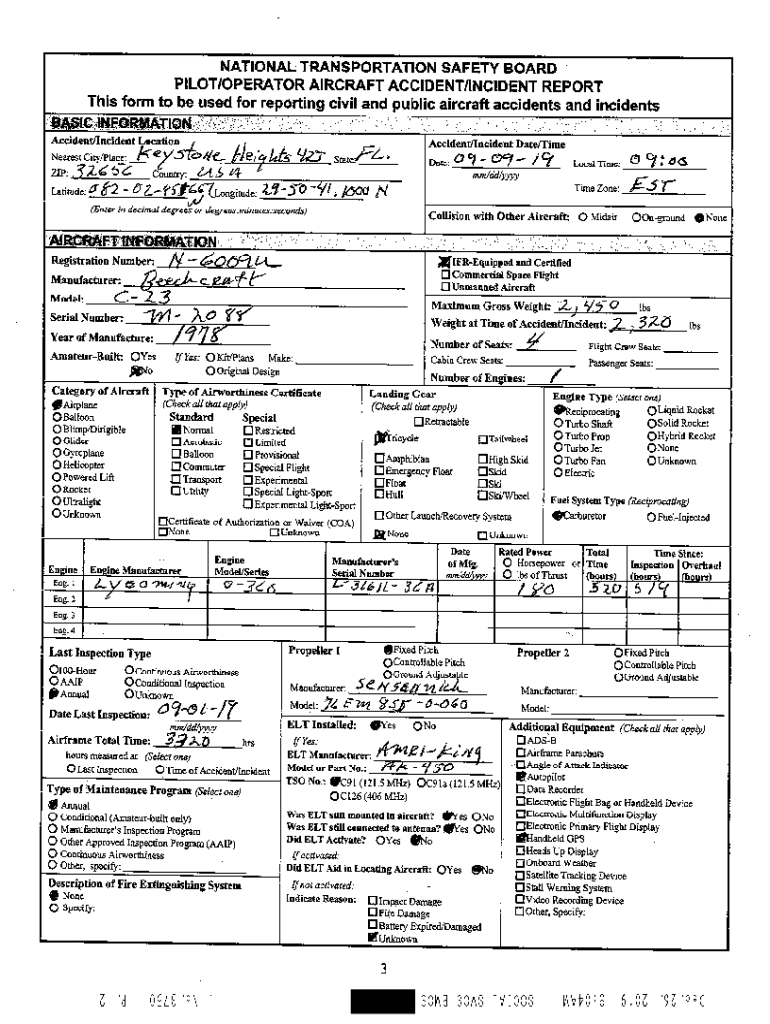 NATIONAL TRANSPORTATION SAFETY BOARD
PILOT/OPERATOR AIRCRAFT ACCIDENT/INCIDENT REPORT
This form to be used for reporting civil and public aircraft accidents and incidents
BASIC INFORMATION
Accident/Incident Location
Nearest City/Place: Keystone Heights 42J State: FL.
ZIP: 32656 Country: USA
Latitude: 082-02- Longitude: 29-50-41.1000 N
(Enter in decimal degrees or degrees:minutes:seconds)
Accident/Incident Date/Time
Date: 09-09-19 Local Time: 09:00
mm/dd/yyyy
Time Zone: EST
Collision with Other Aircraft: Midair On-ground None
AIRCRAFT INFORMATION
Registration Number: N-6009U
Manufacturer: Beechcraft
Model: C-23
Serial Number: M-2088
Year of Manufacture: 1978
Amateur-Built: Yes If Yes: Kit/Plans Make:
No Original Design
IFR-Equipped and Certified
Commercial Space Flight
Unmanned Aircraft
Maximum Gross Weight: 2,450 lbs
Weight at Time of Accident/Incident: 2,320 lbs
Number of Seats: 4 Flight Crew Seats:
Cabin Crew Seats: Passenger Seats:
Number of Engines: 1
Category of Aircraft
Airplane
Balloon
Blimp/Dirigible
Glider
Gyroplane
Helicopter
Powered Lift
Rocket
Ultralight
Unknown
Type of Airworthiness Certificate
(Check all that apply)
Standard Special
Normal Restricted
Aerobatic Limited
Balloon Provisional
Commuter Special Flight
Transport Experimental
Utility Special Light-Sport
Experimental Light-Sport
Certificate of Authorization or Waiver (COA)
None Unknown
Landing Gear
(Check all that apply)
Retractable
Tricycle Tailwheel
Amphibian High Skid
Emergency Float Skid
Float Ski
Hull Ski/Wheel
Other Launch/Recovery System
None Unknown
Engine Type (Select one)
Reciprocating Liquid Rocket
Turbo Shaft Solid Rocket
Turbo Prop Hybrid Rocket
Turbo Jet None
Turbo Fan Unknown
Electric
Fuel System Type (Reciprocating)
Carburetor Fuel-Injected
Engine Engine Manufacturer Engine Model/Series Manufacturer's Serial Number Date of Mfg. mm/dd/yyyy Rated Power Horsepower or lbs of Thrust Total Time (hours) Time Since: Inspection (hours) Overhaul (hours)
Eng. 1 Lycoming 180 519
Eng. 2
Eng. 3
Eng. 4
Last Inspection Type
100-Hour Continuous Airworthiness
AAIP Conditional Inspection
Annual Unknown
Date Last Inspection: 09-01-19
mm/dd/yyyy
Airframe Total Time: 3720 hrs
hours measured at (Select one)
Last Inspection Time of Accident/Incident
Type of Maintenance Program (Select one)
Annual
Conditional (Amateur-built only)
Manufacturer's Inspection Program
Other Approved Inspection Program (AAIP)
Continuous Airworthiness
Other, specify:
Description of Fire Extinguishing System
None
Specify:
Propeller 1 Fixed Pitch
Controllable Pitch
Ground Adjustable
Manufacturer: Sensennich
Model: -0-060
ELT Installed: Yes No
If Yes:
ELT Manufacturer: AMRI-King
Model or Part No.: AK-450
TSO No.: C91 (121.5 MHz) C91a (121.5 MHz)
C126 (406 MHz)
Was ELT still mounted in aircraft? Yes No
Was ELT still connected to antenna? Yes No
Did ELT Activate? Yes No
If activated:
Did ELT Aid in Locating Aircraft: Yes No
If not activated:
Indicate Reason: Impact Damage
Fire Damage
Battery Expired/Damaged
Unknown
Propeller 2 Fixed Pitch
Controllable Pitch
Ground Adjustable
Manufacturer:
Model:
Additional Equipment (Check all that apply)
ADS-B
Airframe Parachute
Angle of Attack Indicator
Autopilot
Data Recorder
Electronic Flight Bag or Handheld Device
Electronic Multifunction Display
Electronic Primary Flight Display
Handheld GPS
Heads Up Display
Onboard Weather
Satellite Tracking Device
Stall Warning System
Video Recording Device
Other, Specify:
3
Dec. 26. 2019 8:04AM SOCIAL SVCS EMCS No. 3750 P. 2